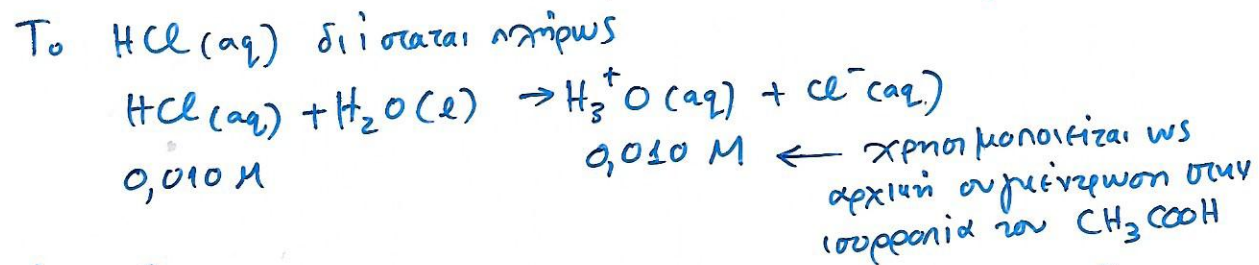 Το HCl (aq) διίσταται πλήρως
HCl (aq) + H₂O (l) → H₃⁺O (aq) + Cl⁻ (aq)
0,010 M 0,010 M ← χρησιμοποιείται ως
αρχική συγκέντρωση στην
ισορροπία του CH₃COOH